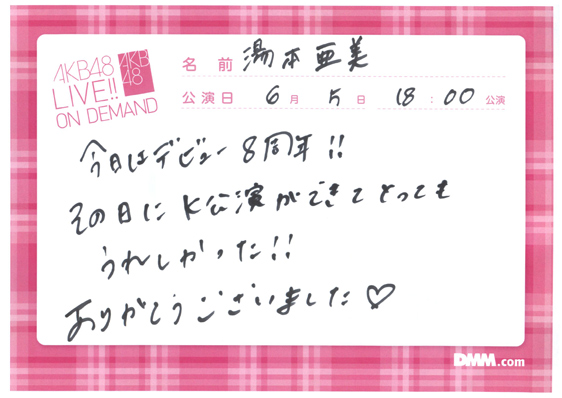 AKB48
LIVE!!
ON DEMAND
AKB
48
名前 湯本亜美
公演日 6月5日 18:00 公演
今日はデビュー8周年!!
その日にK公演ができてとっても
うれしかった!!
ありがとうございました♡
DMM.com